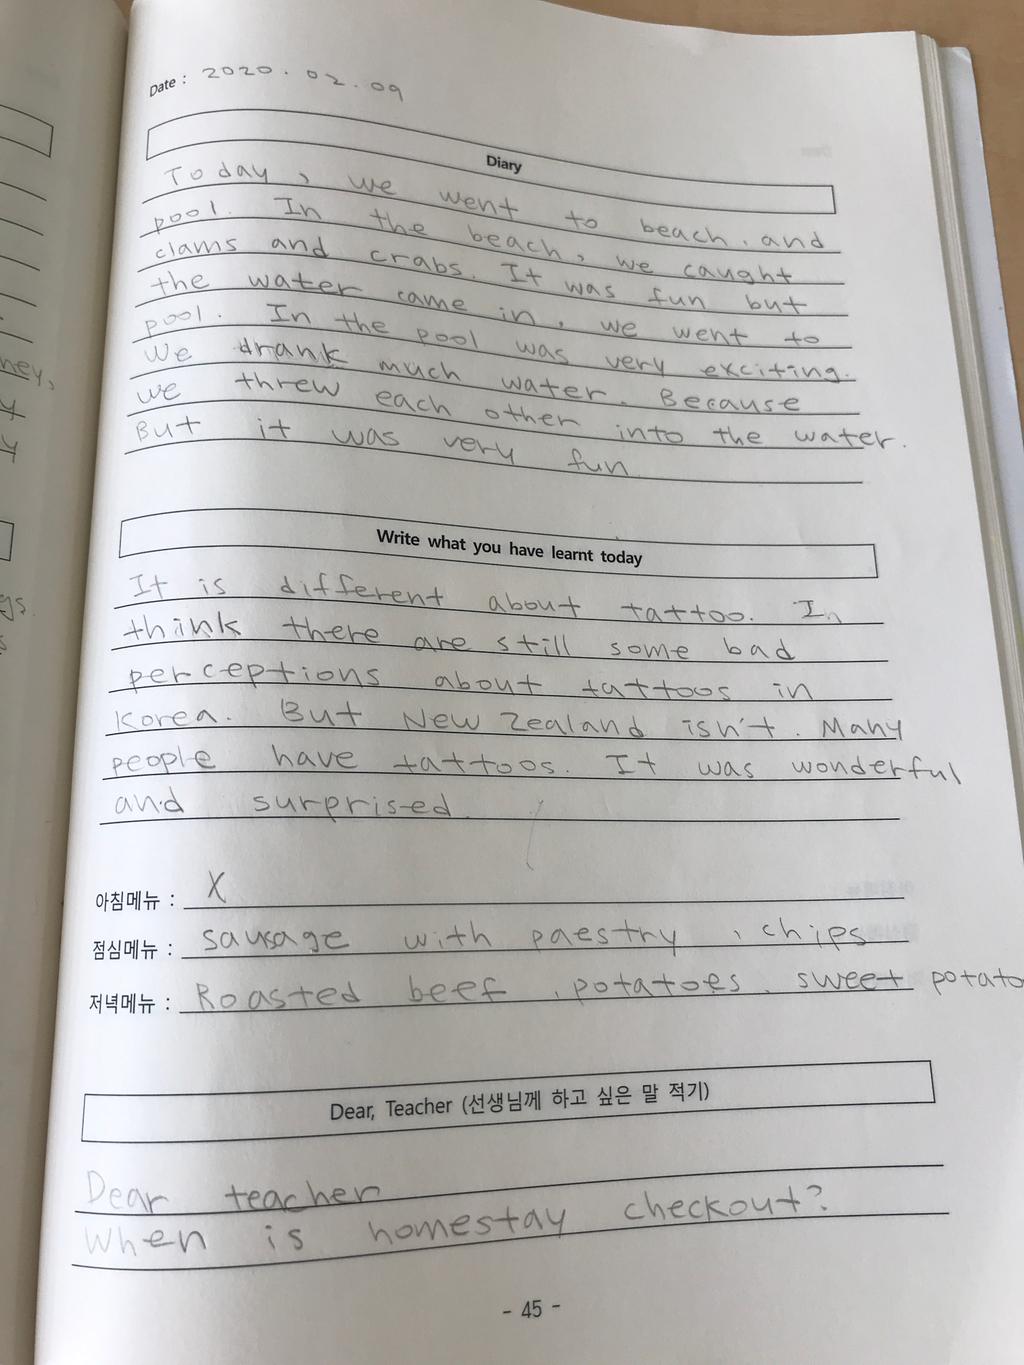 Date : 2020.02.09
Diary
Today, we went to beach, and
pool. In the beach, we caught
clams and crabs. It was fun but
the water came in, we went to
pool. In the pool was very exciting.
We drank much water. Because
we threw each other into the water.
But it was very fun
Write what you have learnt today
It is different about tattoo. In
think there are still some bad
perceptions about tattoos in
Korea. But New Zealand isn't. Many
people have tattoos. It was wonderful
and surprised.
아침메뉴 : X
점심메뉴 : sausage with paestry, chips
저녁메뉴 : Roasted beef, potatoes, sweet potato
Dear, Teacher (선생님께 하고 싶은 말 적기)
Dear teacher
When is homestay checkout?
- 45 -